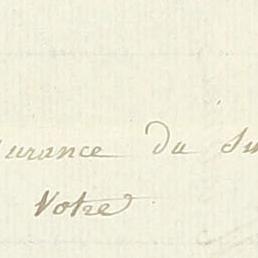 urance du
Votre